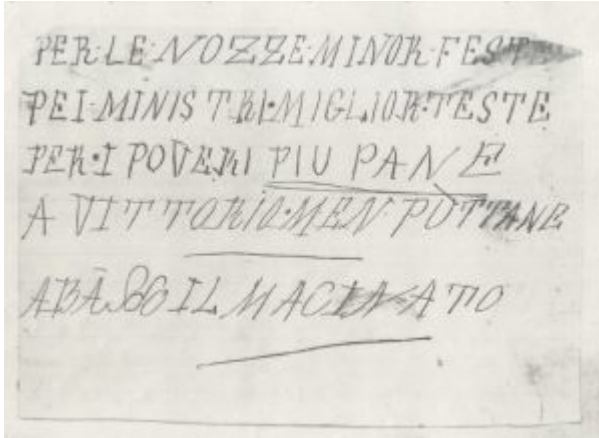 PER·LE·NOZZE·MINOR·FESTE
PEI·MINISTRI·MIGLIOR·TESTE
PER·I POVERI PIU PANE
A VITTORIO·MEN·PUTTANE
ABĀSSO IL MACINATO